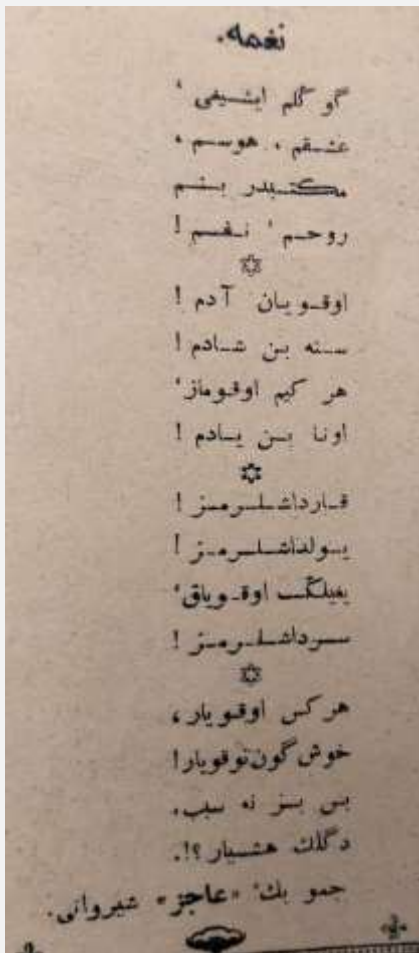 نغمه.
گوگلم ایشیغی ،
عشقم ، هوسم ،
مکتبدر بنم
روحم ، نفسم !
اوقویان آدم !
سنه بن شادم !
هر کیم اوقوماز ،
اونا بن یادم !
قارداشلرمز !
یولداشلرمز !
یغیلگ اوقویاق ،
سرداشلرمز !
هر کس اوقویار ،
خوش گون توقویار !
بس بز نه سبب ،
دگلك هشیار ؟!.
جمو بك ، «عاجز» شیروانی.